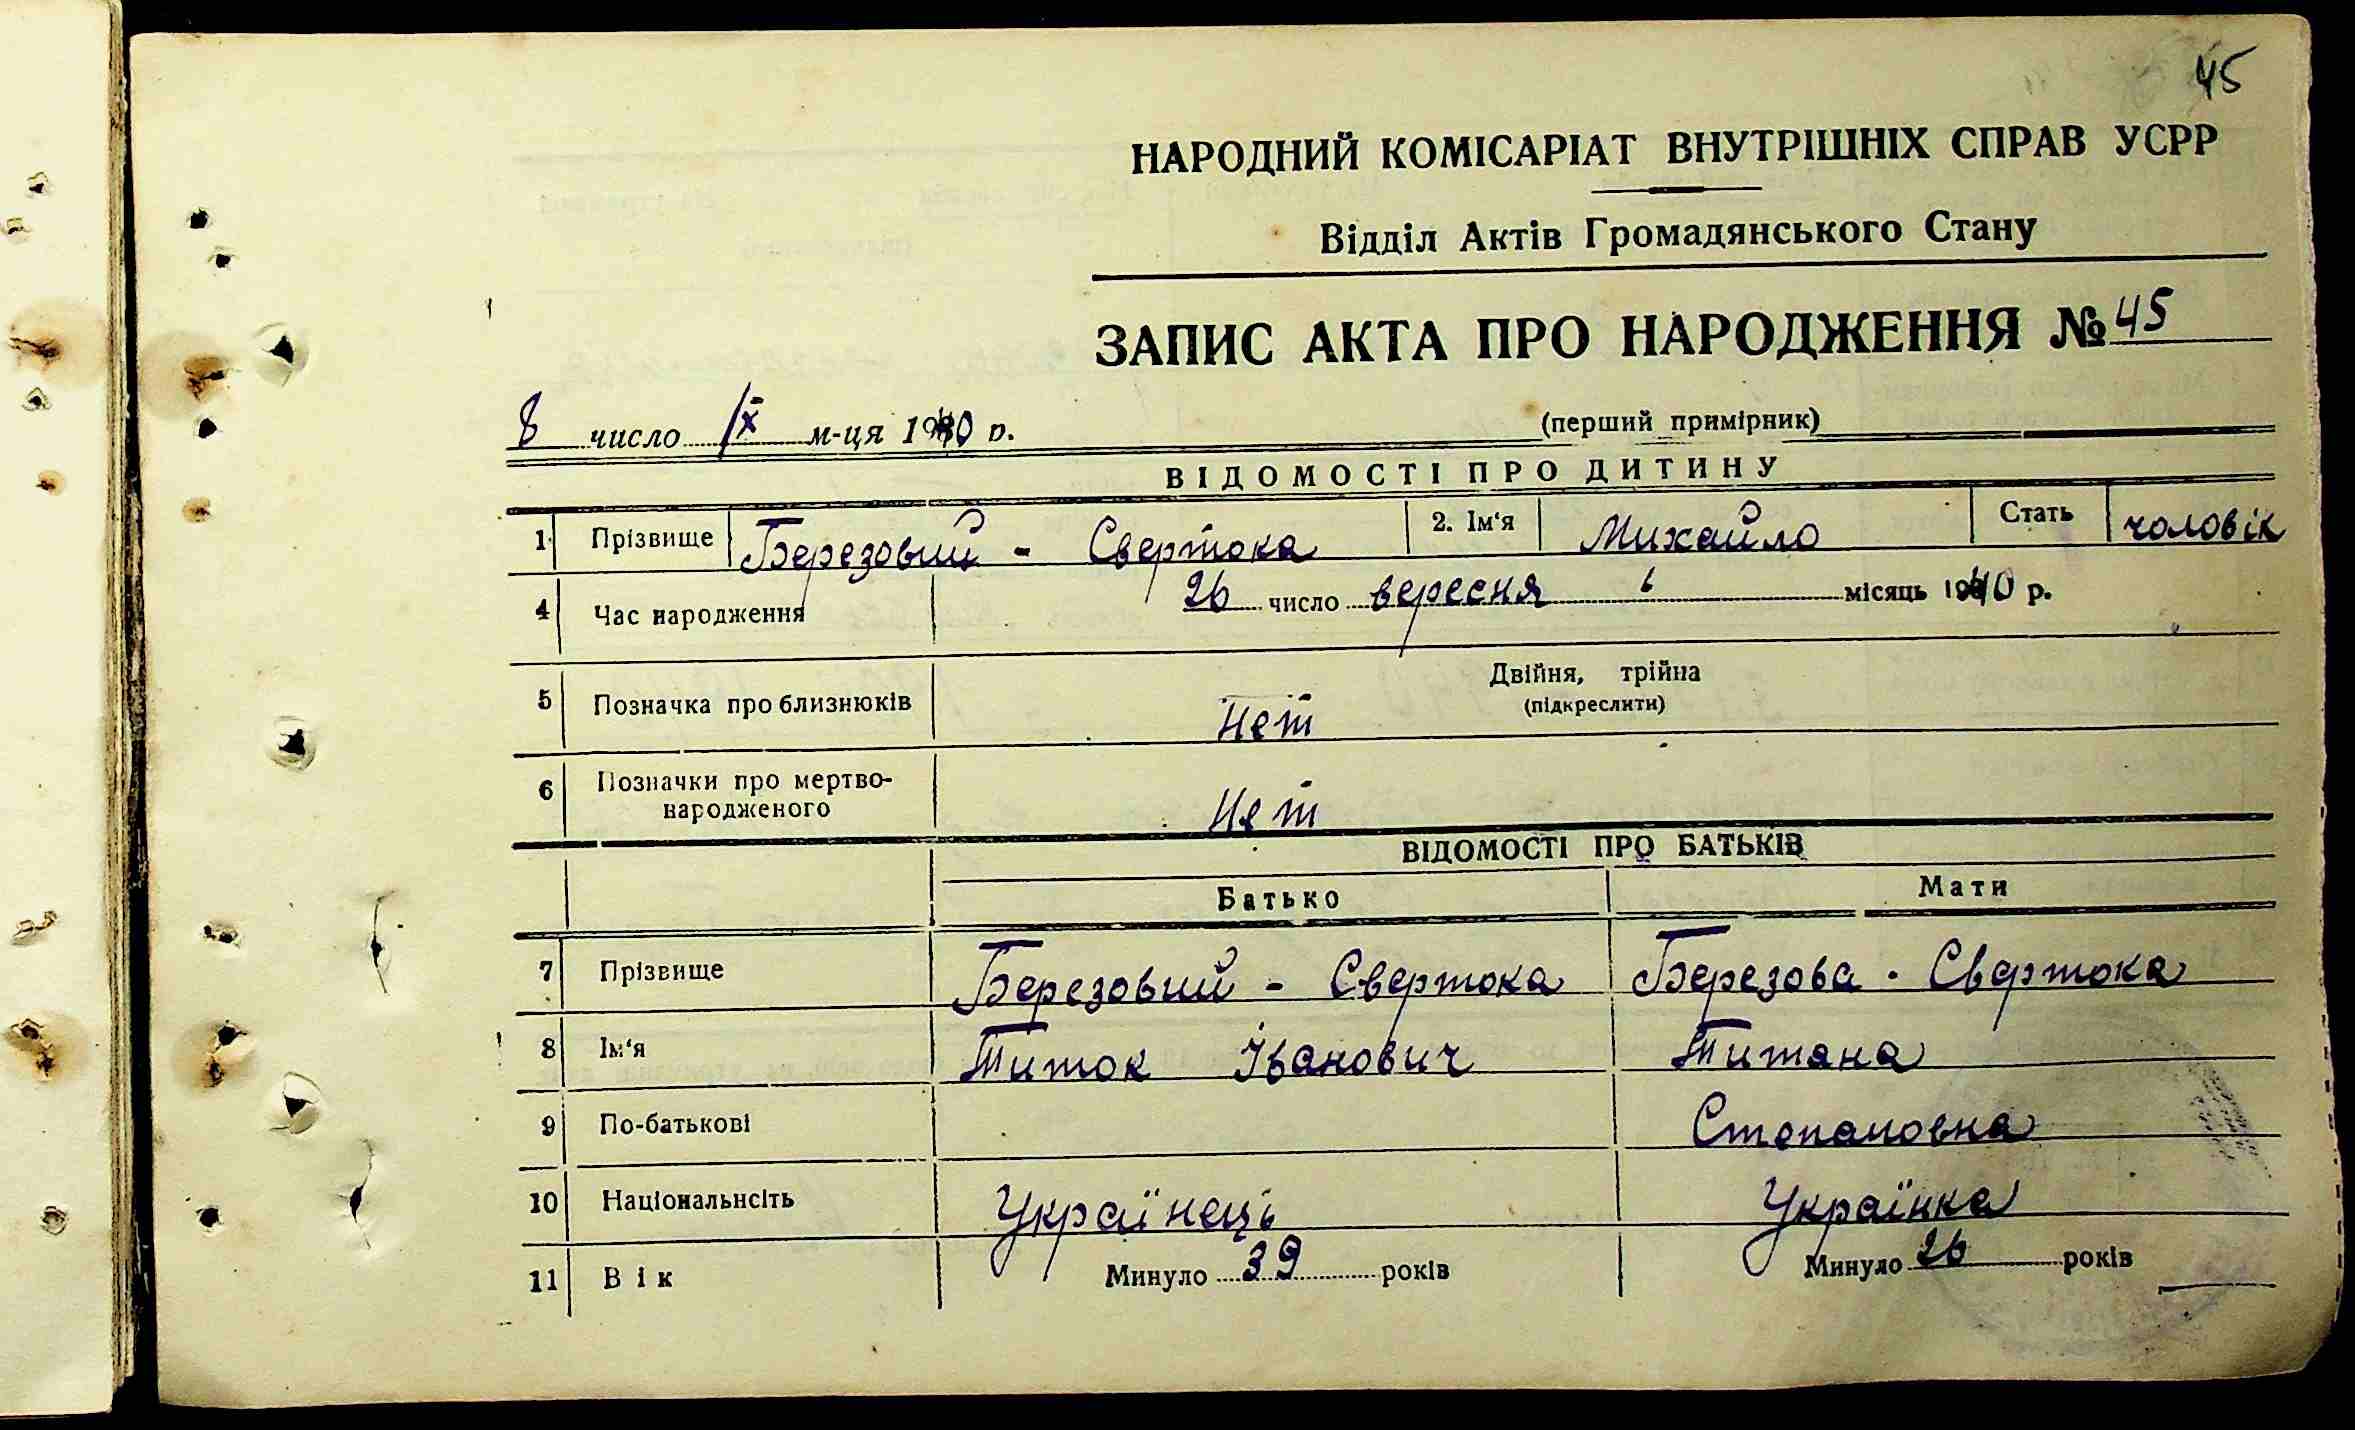 45
НАРОДНИЙ КОМІСАРІАТ ВНУТРІШНІХ СПРАВ УСРР
Відділ Актів Громадянського Стану
ЗАПИС АКТА ПРО НАРОДЖЕННЯ № 45
8 число ІХ м-ця 1940 р.
(перший примірник)
ВІДОМОСТІ ПРО ДИТИНУ
1 Прізвище Березовий - Свертока 2. Ім'я Михайло Стать чоловік
4 Час народження 26 число вересня місяць 1940 р.
5 Позначка про близнюків Нет Двійня, трійна
(підкреслити)
6 Позначки про мертво-
народженого Нет
ВІДОМОСТІ ПРО БАТЬКІВ
Батько Мати
7 Прізвище Березовий - Свертока Березова - Свертока
8 Ім'я Титок Іванович Титяна
9 По-батькові Степановна
10 Національнсіть Українець Українка
11 Вік Минуло 39 років Минуло 26 років